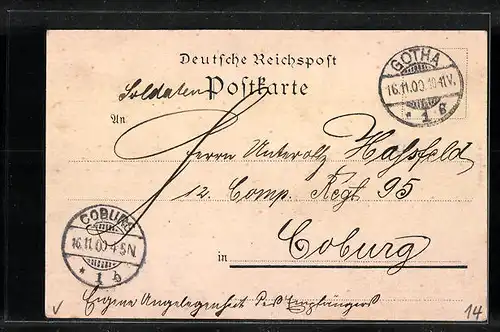 Deutsche Reichspost
Soldaten Postkarte
GOTHA
16.11.00.10-11V.
* 1 g
An
Herrn Unteroffz Hassfeld
12. Comp. Regt 95
in Coburg
COBURG
16.11.00 4-5N
* 1 b
Eigene Angelegenheit des Empfängers
14